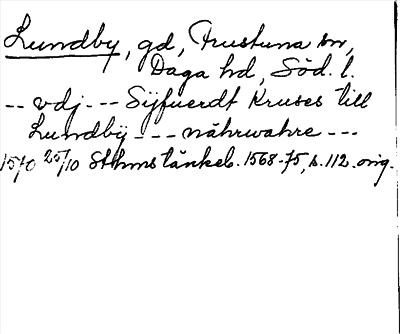 Lundby, gd, Frustuna sn,
Daga hd, Söd. l.
-- vdj --- Sÿfuerdt Kruses till
Lundbÿ --- nährwahre ---
1570 25/10 Sthms tänkeb. 1568-75, s. 112. orig.